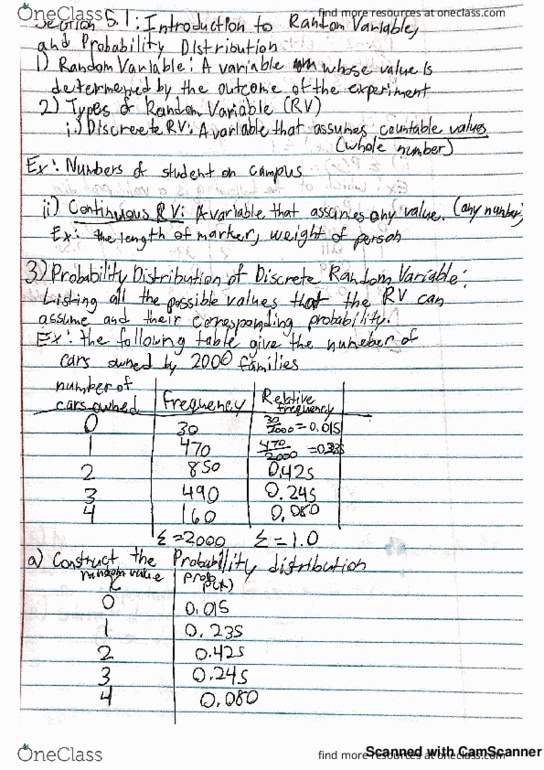 OneClass find more resources at oneclass.com
Section 5.1: Introduction to Random Variable,
and Probability Distribution
1) Random Variable: A variable whose value is
determened by the outcome of the experiment
2) Types of Random Variable (RV)
i.) Discreete RV: A variable that assumes countable values
(whole number)
Ex: Numbers of student on campus
ii) Continuous RV: A variable that assumes any value. (any number)
Ex: the length of marker, weight of person
3) Probability Distribution of Discrete Random Variable:
Listing all the possible values that the RV can
assume and their corresponding probability.
Ex: the following table give the number of
cars owned by 2000 families
number of cars owned Frequency Relative frequency
0 30 30/2000 = 0.015
1 470 470/2000 = 0.235
2 850 0.425
3 490 0.245
4 160 0.080
Σ = 2000 Σ = 1.0
a) Construct the Probability distribution
value Prob P(x)
0 0.015
1 0.235
2 0.425
3 0.245
4 0.080
OneClass find more resources at oneclass.com
Scanned with CamScanner